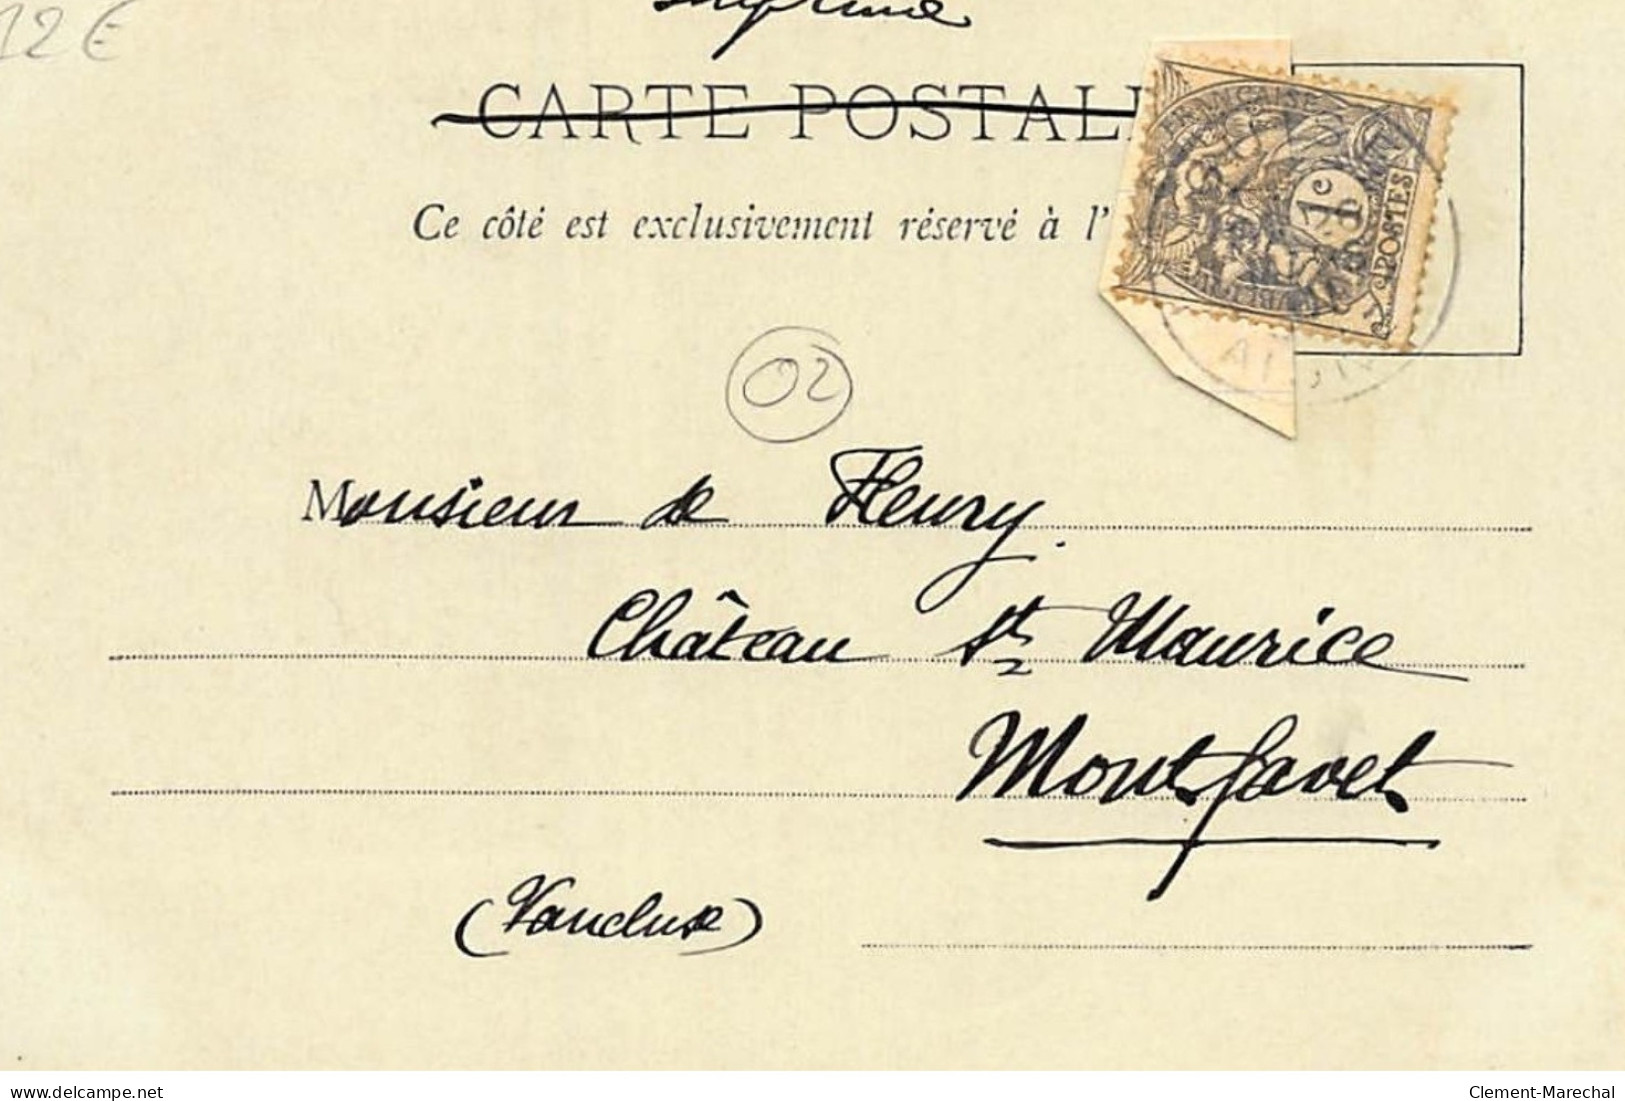 12€
Imprimé
CARTE POSTAL
Ce côté est exclusivement réservé à l'
FRANÇAISE
1c
POSTES
02
Monsieur de Fleury
Château St Maurice
Montfavet
(Vaucluse)
www.delcampe.net
Clement-Marechal